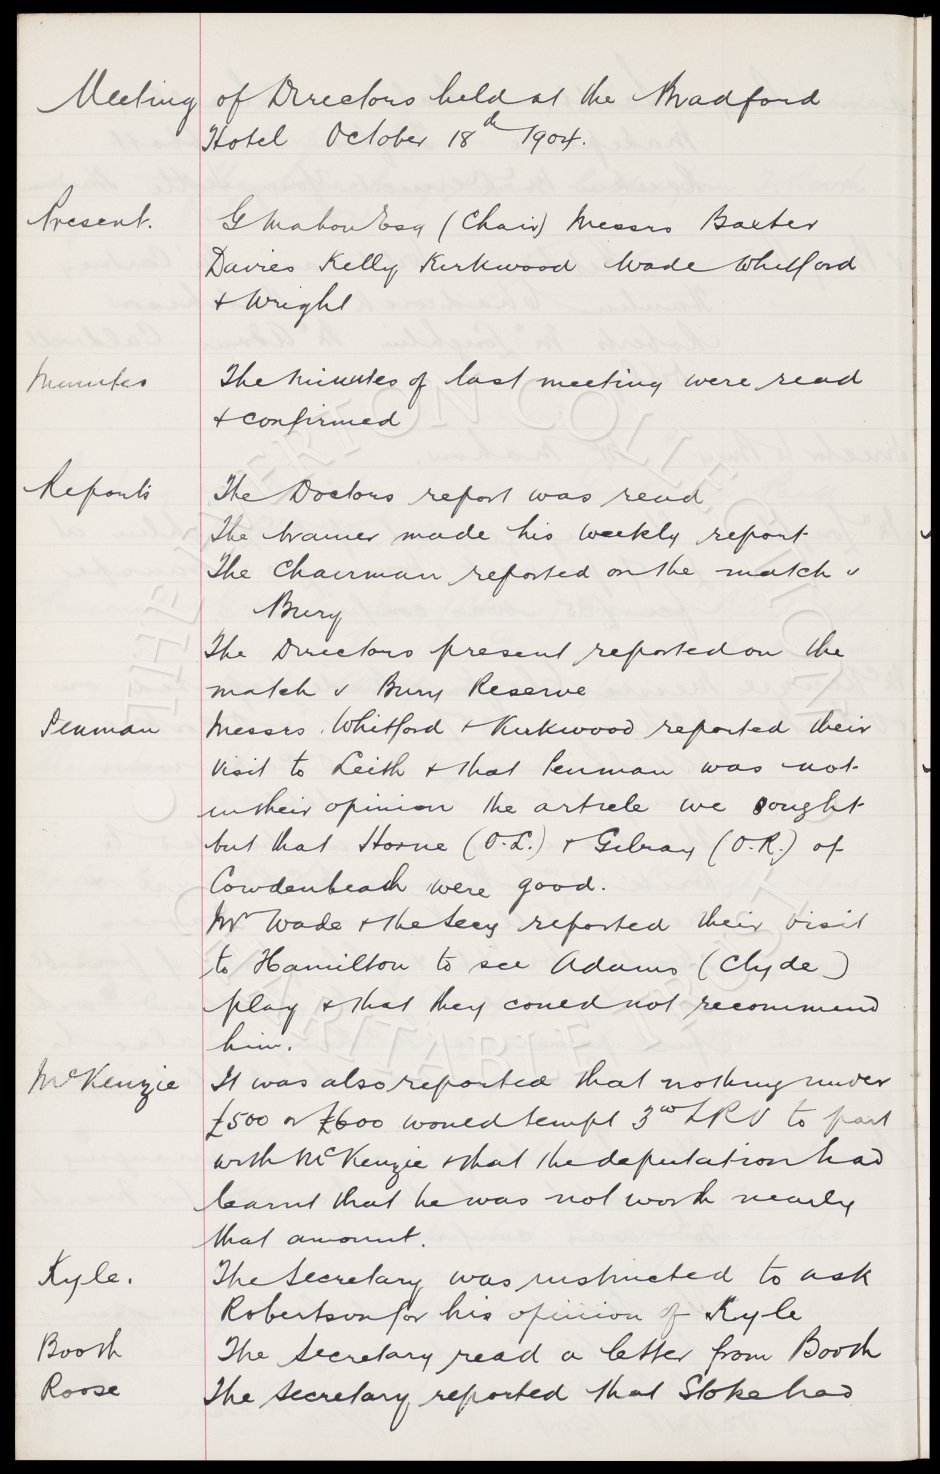 Meeting of Directors held at the Bradford
Hotel October 18th 1904.
Present. G Mahon Esq (Chair) Messrs Baxter
Davies Kelly Kirkwood Wade Whitford
& Wright
Minutes The minutes of last meeting were read
& confirmed
Reports The Doctors report was read
The trainer made his weekly report
The Chairman reported on the match v
Bury
The Directors present reported on the
match v Bury Reserve
Penman Messrs. Whitford & Kirkwood reported their
visit to Leith & that Penman was not
in their opinion the article we sought
but that Horne (O.L.) & Gilray (O.R.) of
Cowdenbeath were good.
Mr Wade & the Secy reported their visit
to Hamilton to see Adams (Clyde)
play & that they could not recommend
him.
McKenzie It was also reported that nothing under
£500 or £600 would tempt 3rd LRV to part
with McKenzie & that the deputation had
learnt that he was not worth nearly
that amount.
Kyle. The Secretary was instructed to ask
Robertson for his opinion of Kyle
Booth The Secretary read a letter from Booth
Roose The Secretary reported that Stoke had
THE EVERTON COLLECTION
CHARITABLE TRUST